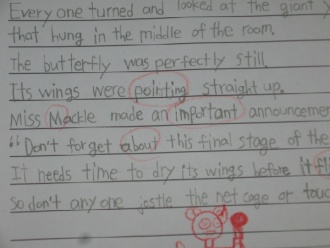 Everyone turned and looked at the giant
that hung in the middle of the room.
The butterfly was perfectly still.
Its wings were pointing straight up.
Miss Mackle made an important announcemen
"Don't forget about this final stage of the
It needs time to dry its wings before it fl
so don't any one jostle the net cage or touc